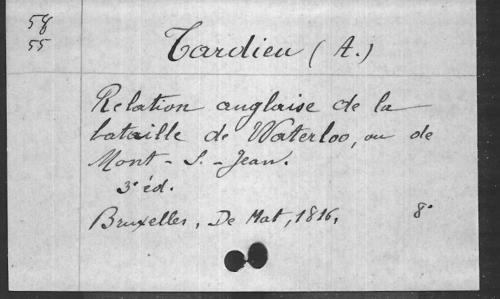 58
55
Tardieu (A.)
Relation anglaise de la
bataille de Waterloo, ou de
Mont-S.-Jean.
3e éd.
Bruxelles, De Mat, 1816. 8°